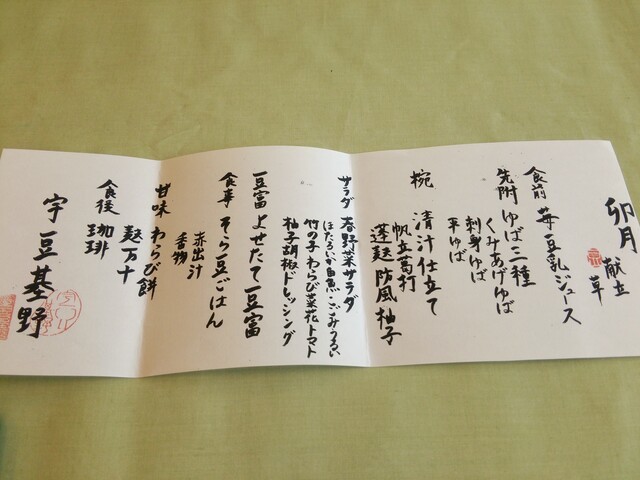 卯月 献立
草
食前 苺豆乳ジュース
先附 ゆば三種
くみあげゆば
刺身ゆば
平ゆば
椀 清汁仕立て
帆立葛打
蓬麸 防風 柚子
サラダ 春野菜サラダ
ほたるいか 白魚 こごみ うるい
竹の子 わらび 菜花 トマト
柚子胡椒ドレッシング
豆富 よせたて豆富
食事 そら豆ごはん
赤出汁
香物
甘味 わらび餅
麸万十
食後 珈琲
宇豆基野